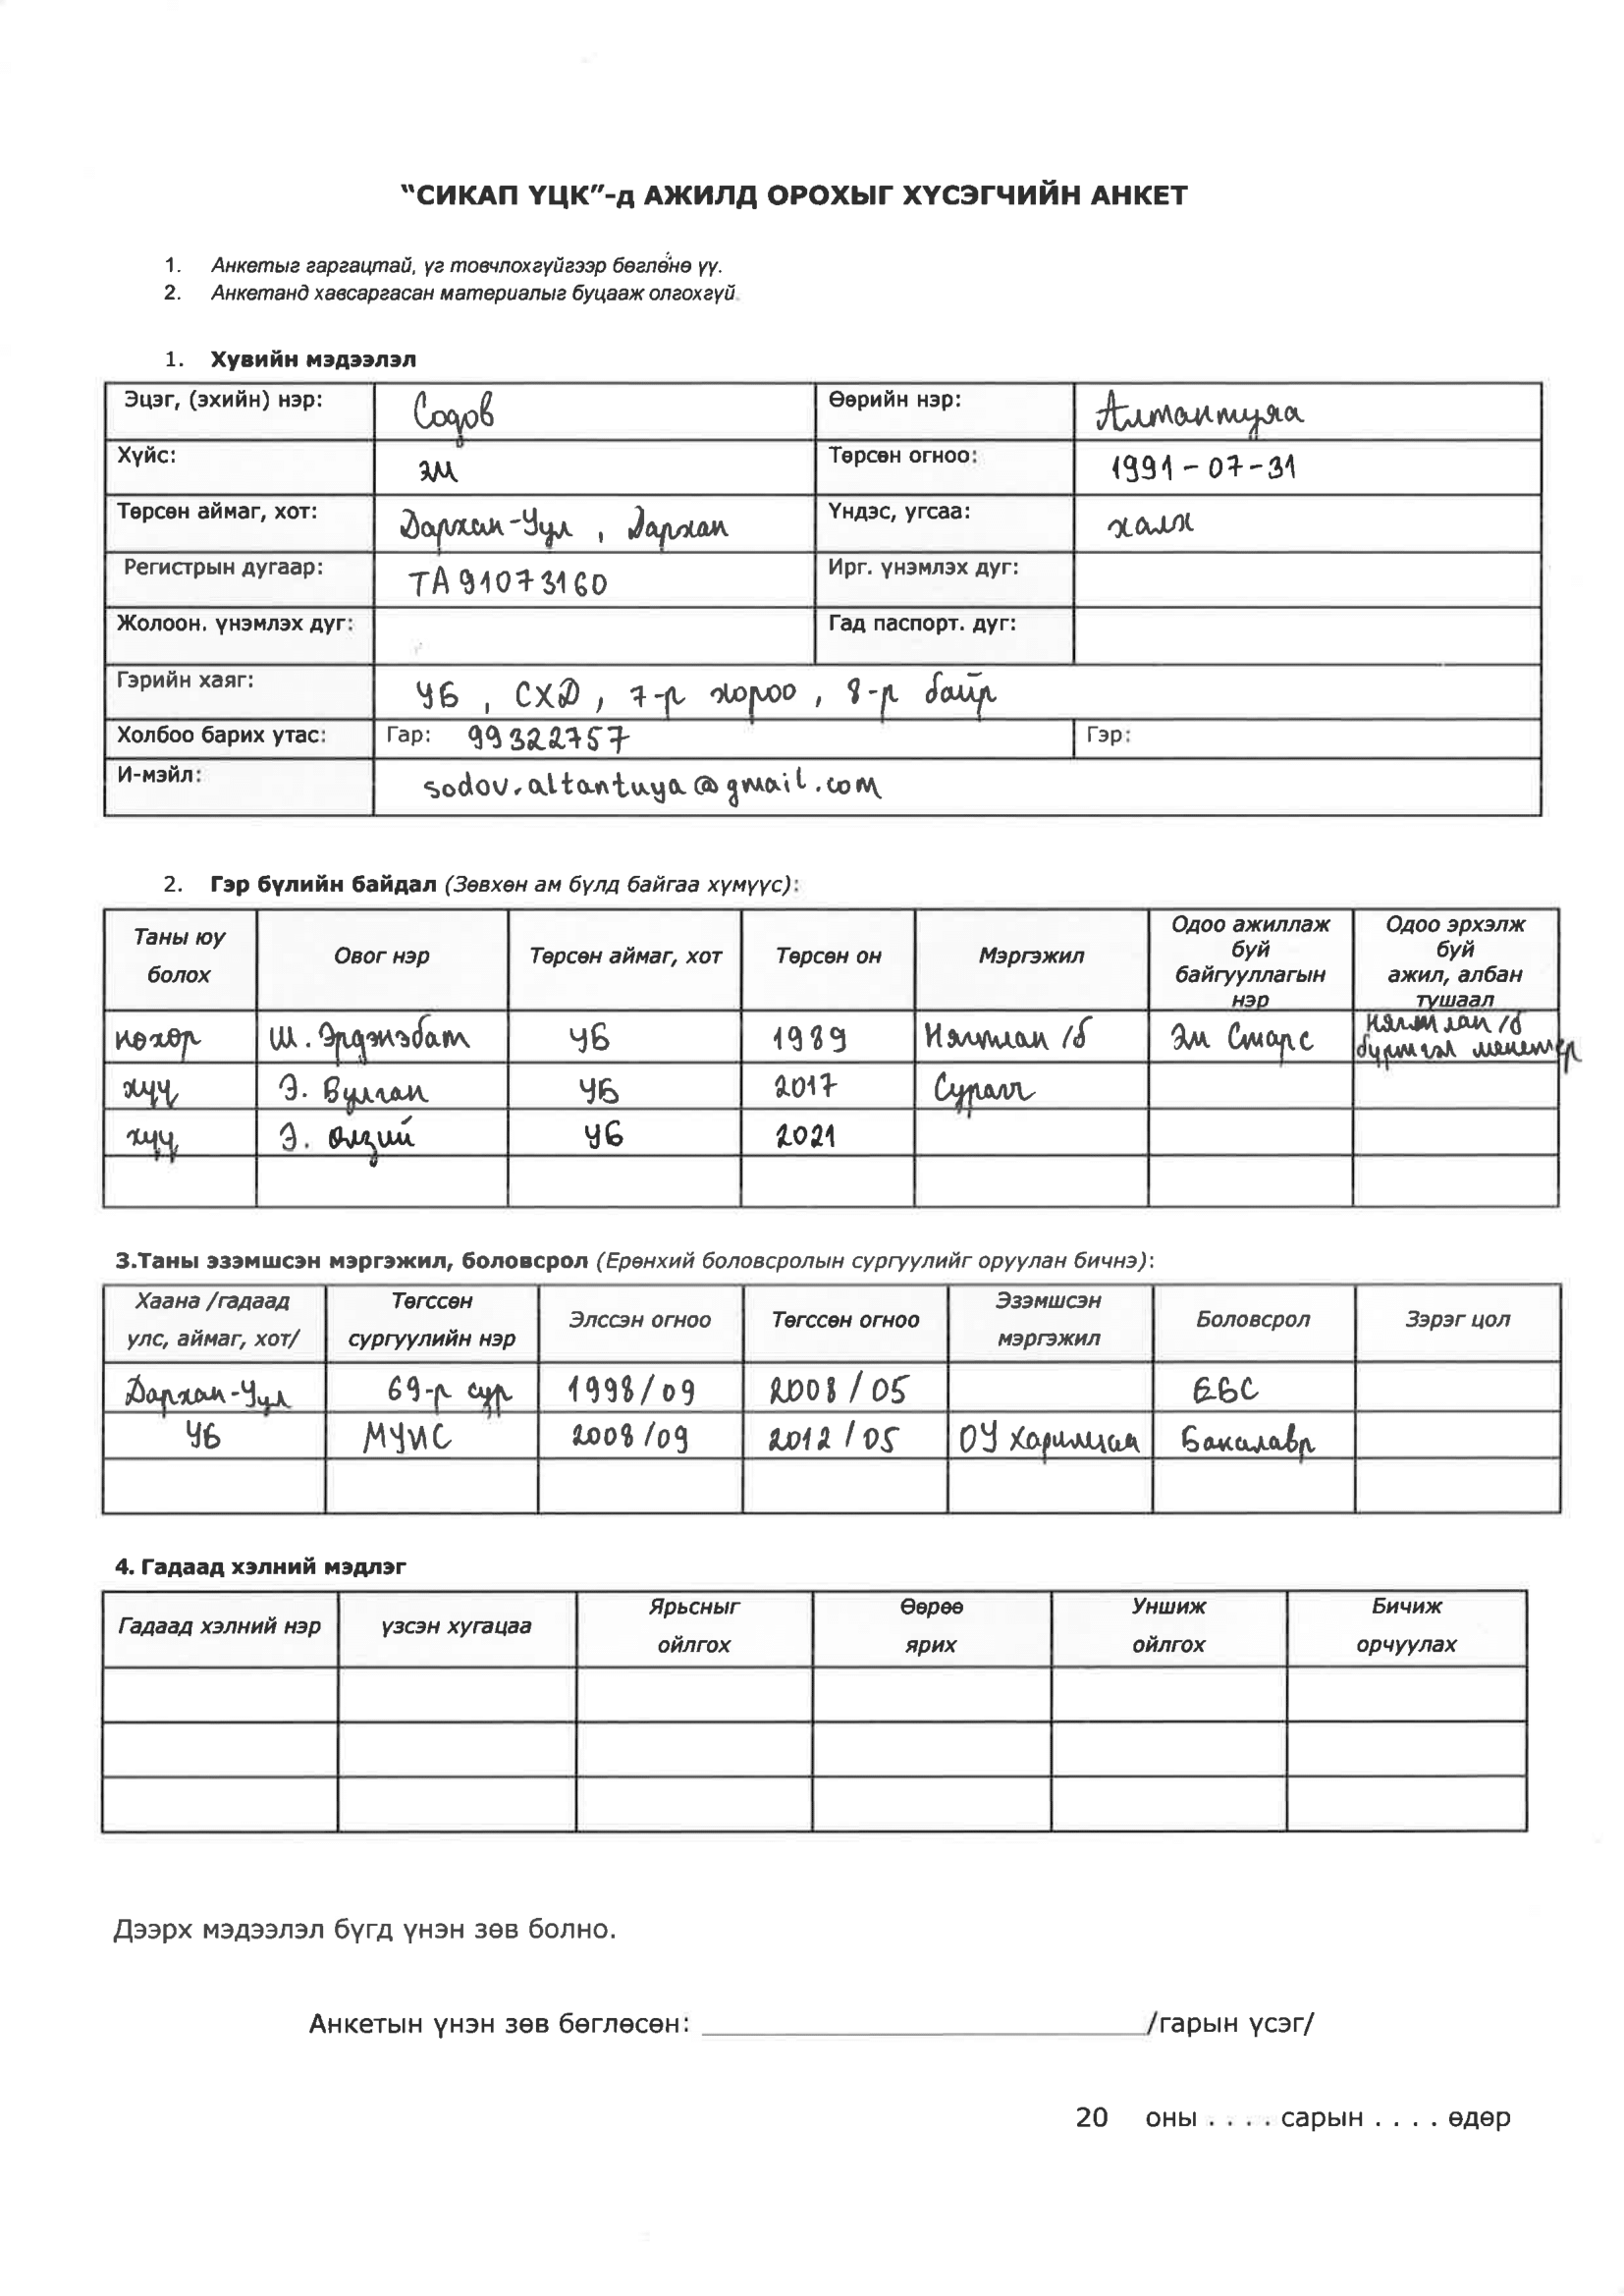 “СИКАП ҮЦК”-д АЖИЛД ОРОХЫГ ХҮСЭГЧИЙН АНКЕТ
1. Анкетыг гаргацтай, үг товчлохгүйгээр бөглөнө үү.
2. Анкетанд хавсаргасан материалыг буцааж олгохгүй.
1. Хувийн мэдээлэл
Эцэг, (эхийн) нэр: Содов Өөрийн нэр: Алтантуяа
Хүйс: эм Төрсөн огноо: 1991-07-31
Төрсөн аймаг, хот: Дархан-Уул, Дархан Үндэс, угсаа: халх
Регистрын дугаар: ТА91073160 Ирг. үнэмлэх дуг:
Жолоон. үнэмлэх дуг: Гад паспорт. дуг:
Гэрийн хаяг: УБ, СХД, 7-р хороо, 8-р байр
Холбоо барих утас: Гар: 99322757 Гэр:
И-мэйл: sodov.altantuya@gmail.com
2. Гэр бүлийн байдал (Зөвхөн ам бүлд байгаа хүмүүс):
Таны юу болох Овог нэр Төрсөн аймаг, хот Төрсөн он Мэргэжил Одоо ажиллаж буй байгууллагын нэр Одоо эрхэлж буй ажил, албан тушаал
нөхөр Ш. Эрдэнэбат УБ 1989 Нягтлан /б Эм Старс Нягтлан /б бүртгэл менежер
хүү Э. Булган УБ 2017 Сурагч
хүү Э. Өлзий УБ 2021
3.Таны эзэмшсэн мэргэжил, боловсрол (Ерөнхий боловсролын сургуулийг оруулан бичнэ):
Хаана /гадаад улс, аймаг, хот/ Төгссөн сургуулийн нэр Элссэн огноо Төгссөн огноо Эзэмшсэн мэргэжил Боловсрол Зэрэг цол
Дархан-Уул 69-р сур 1998/09 2008/05 ЕБС
УБ МУИС 2008/09 2012/05 ОУ харилцаа Бакалавр
4. Гадаад хэлний мэдлэг
Гадаад хэлний нэр үзсэн хугацаа Ярьсныг ойлгох Өөрөө ярих Уншиж ойлгох Бичиж орчуулах
Дээрх мэдээлэл бүгд үнэн зөв болно.
Анкетын үнэн зөв бөглөсөн: ______________________________/гарын үсэг/
20 оны . . . . сарын . . . . өдөр